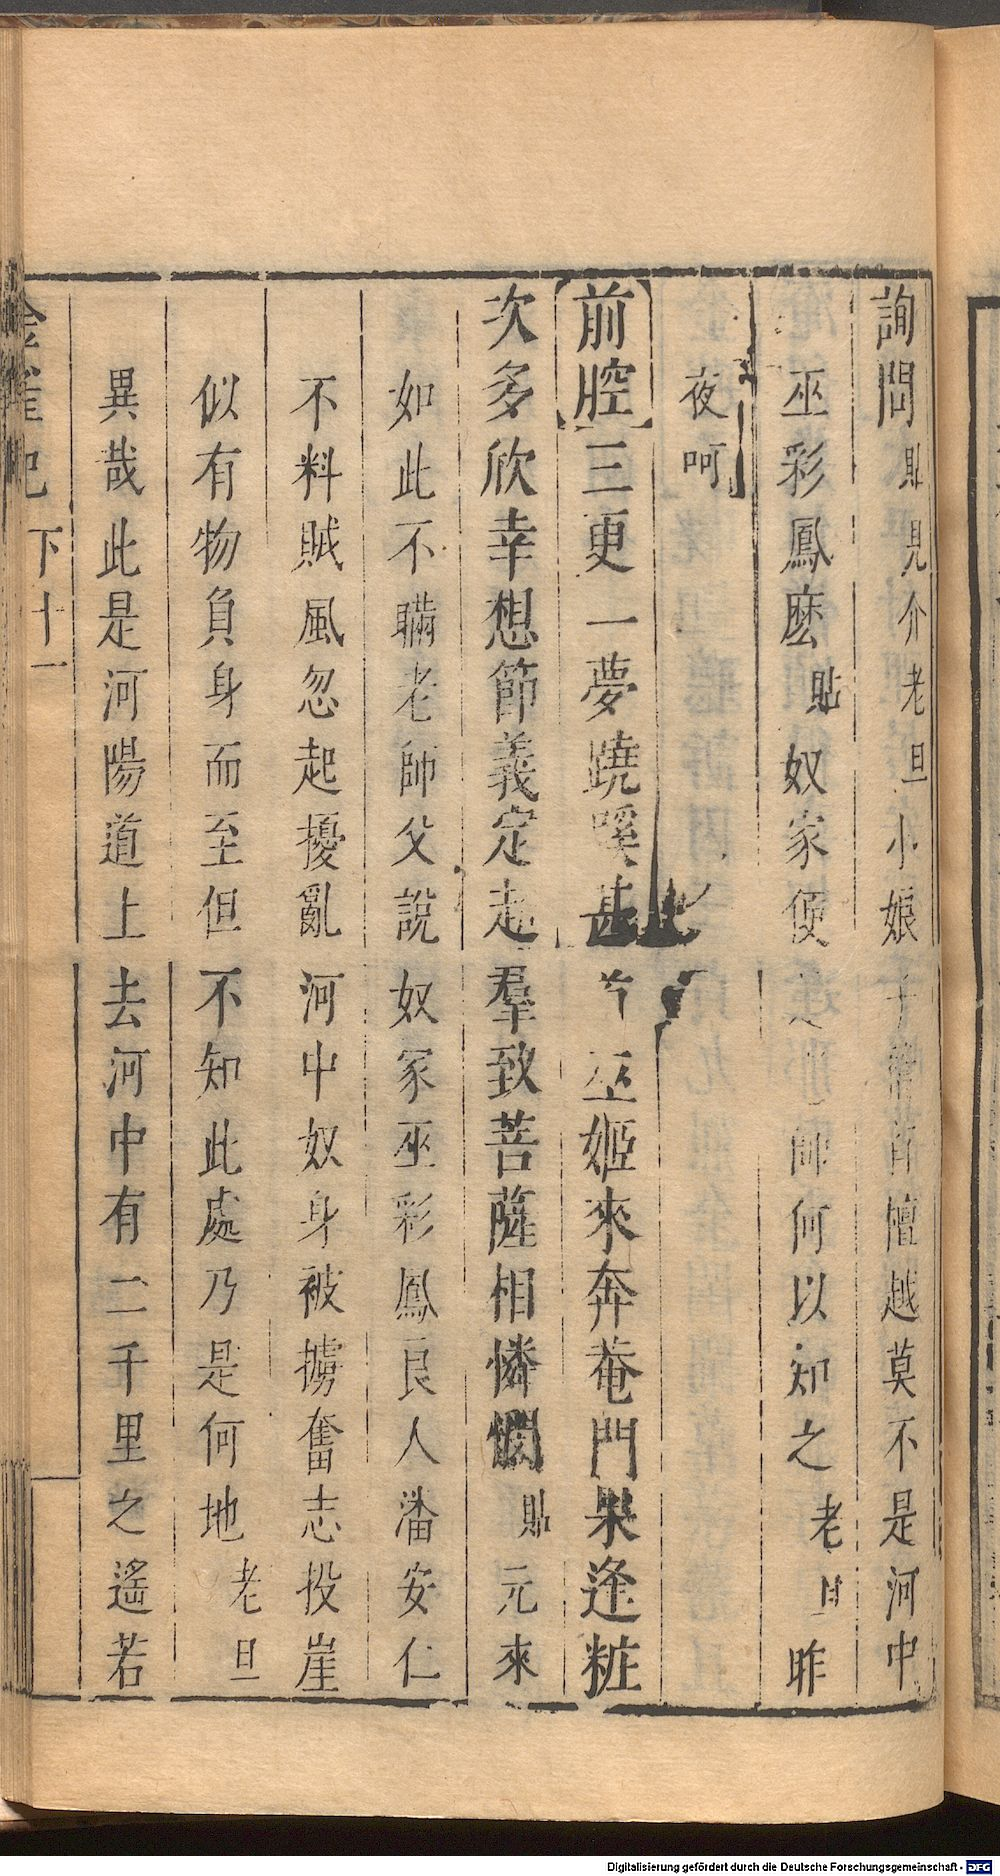 詢問貼見介老旦小娘子稽首檀越莫不是河中
巫彩鳳麽貼奴家便是師何以知之老旦昨
夜呵
前腔三更一夢蹺蹊甚巫姬來奔菴門果逢粧
次多欣幸想節義定超羣致菩薩相憐憫貼元來
如此不瞞老師父說奴家巫彩鳳良人潘安仁
不料賊風忽起擾亂河中奴身被擄奮志投崖
似有物負身而至但不知此處乃是何地老旦
異哉此是河陽道上去河中有二千里之遙若
金雀記 下 十一
Digitalisierung gefördert durch die Deutsche Forschungsgemeinschaft - DFG